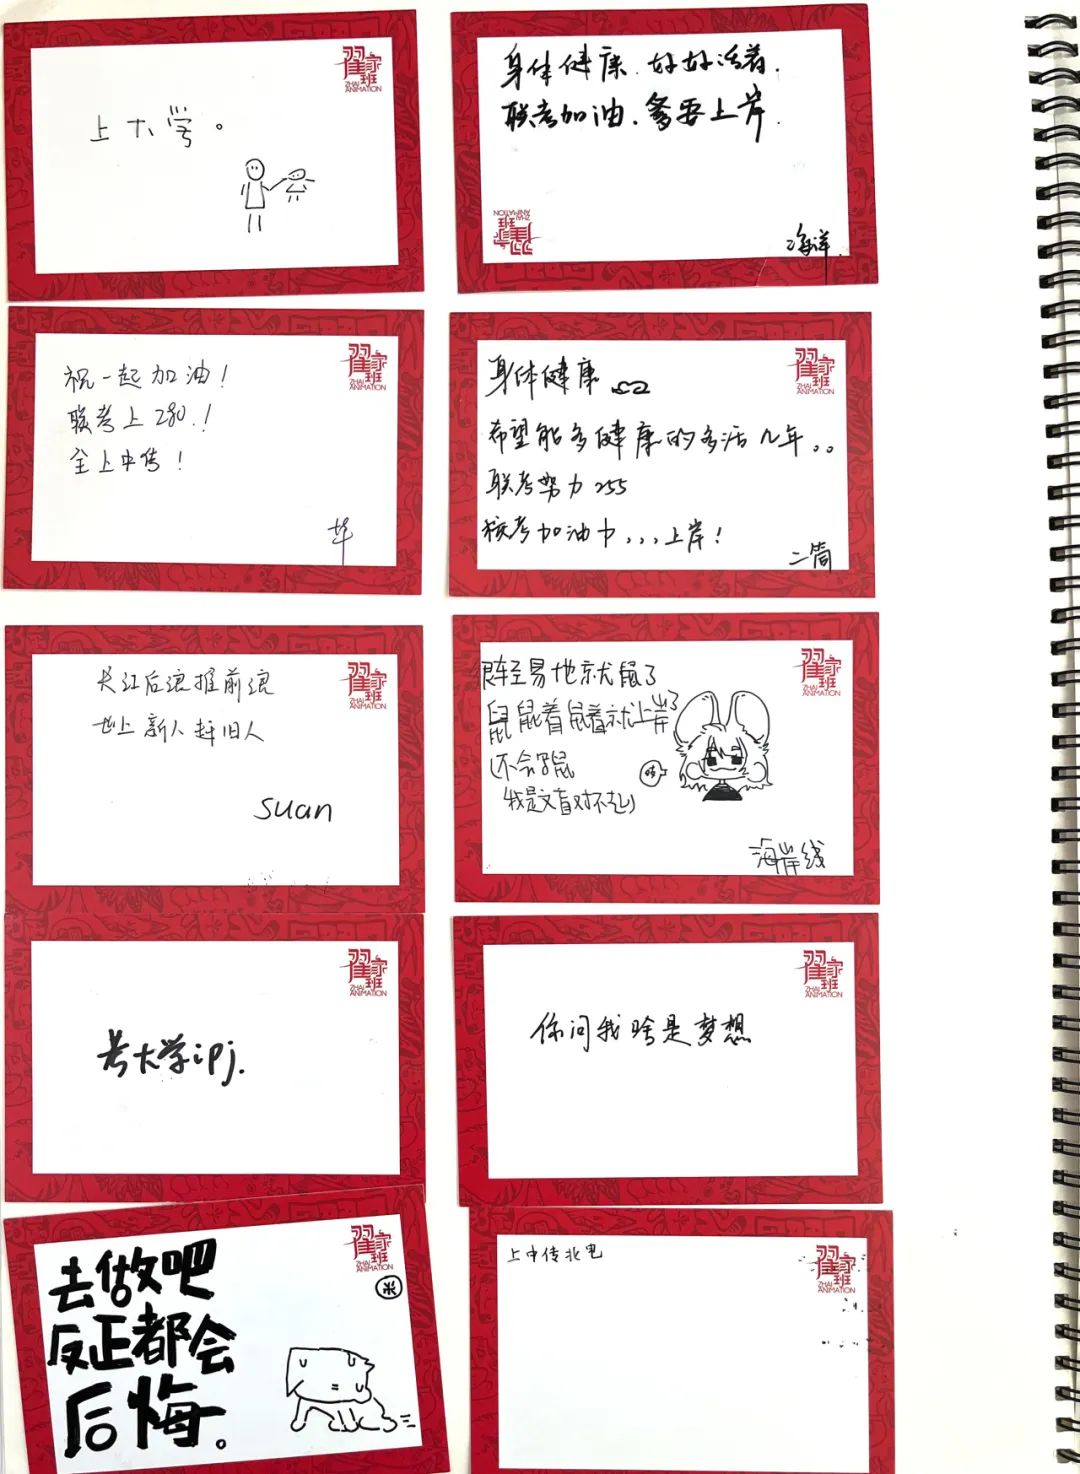 翟家班
ZHAI
ANIMATION
上大学。
身体健康.好好活着.
联考加油.爹要上岸.
海洋.
翟家班
ZHAI
ANIMATION
翟家班
ZHAI
ANIMATION
祝一起加油!
联考上280.!
全上中传!
华
翟家班
ZHAI
ANIMATION
身体健康
希望能多健康的多活几年。。
联考努力255
校考加油中...上岸!
二简
翟家班
ZHAI
ANIMATION
长江后浪推前浪
世上新人赶旧人
suan
翟家班
ZHAI
ANIMATION
轻易地就鼠了
鼠鼠着鼠着就上岸了
(不会写鼠
我是文盲对不起)
吱
海岸线
翟家班
ZHAI
ANIMATION
考大学ipj.
翟家班
ZHAI
ANIMATION
你问我啥是梦想
翟家班
ZHAI
ANIMATION
米
去做吧
反正都会
后悔。
翟家班
ZHAI
ANIMATION
上中传北电